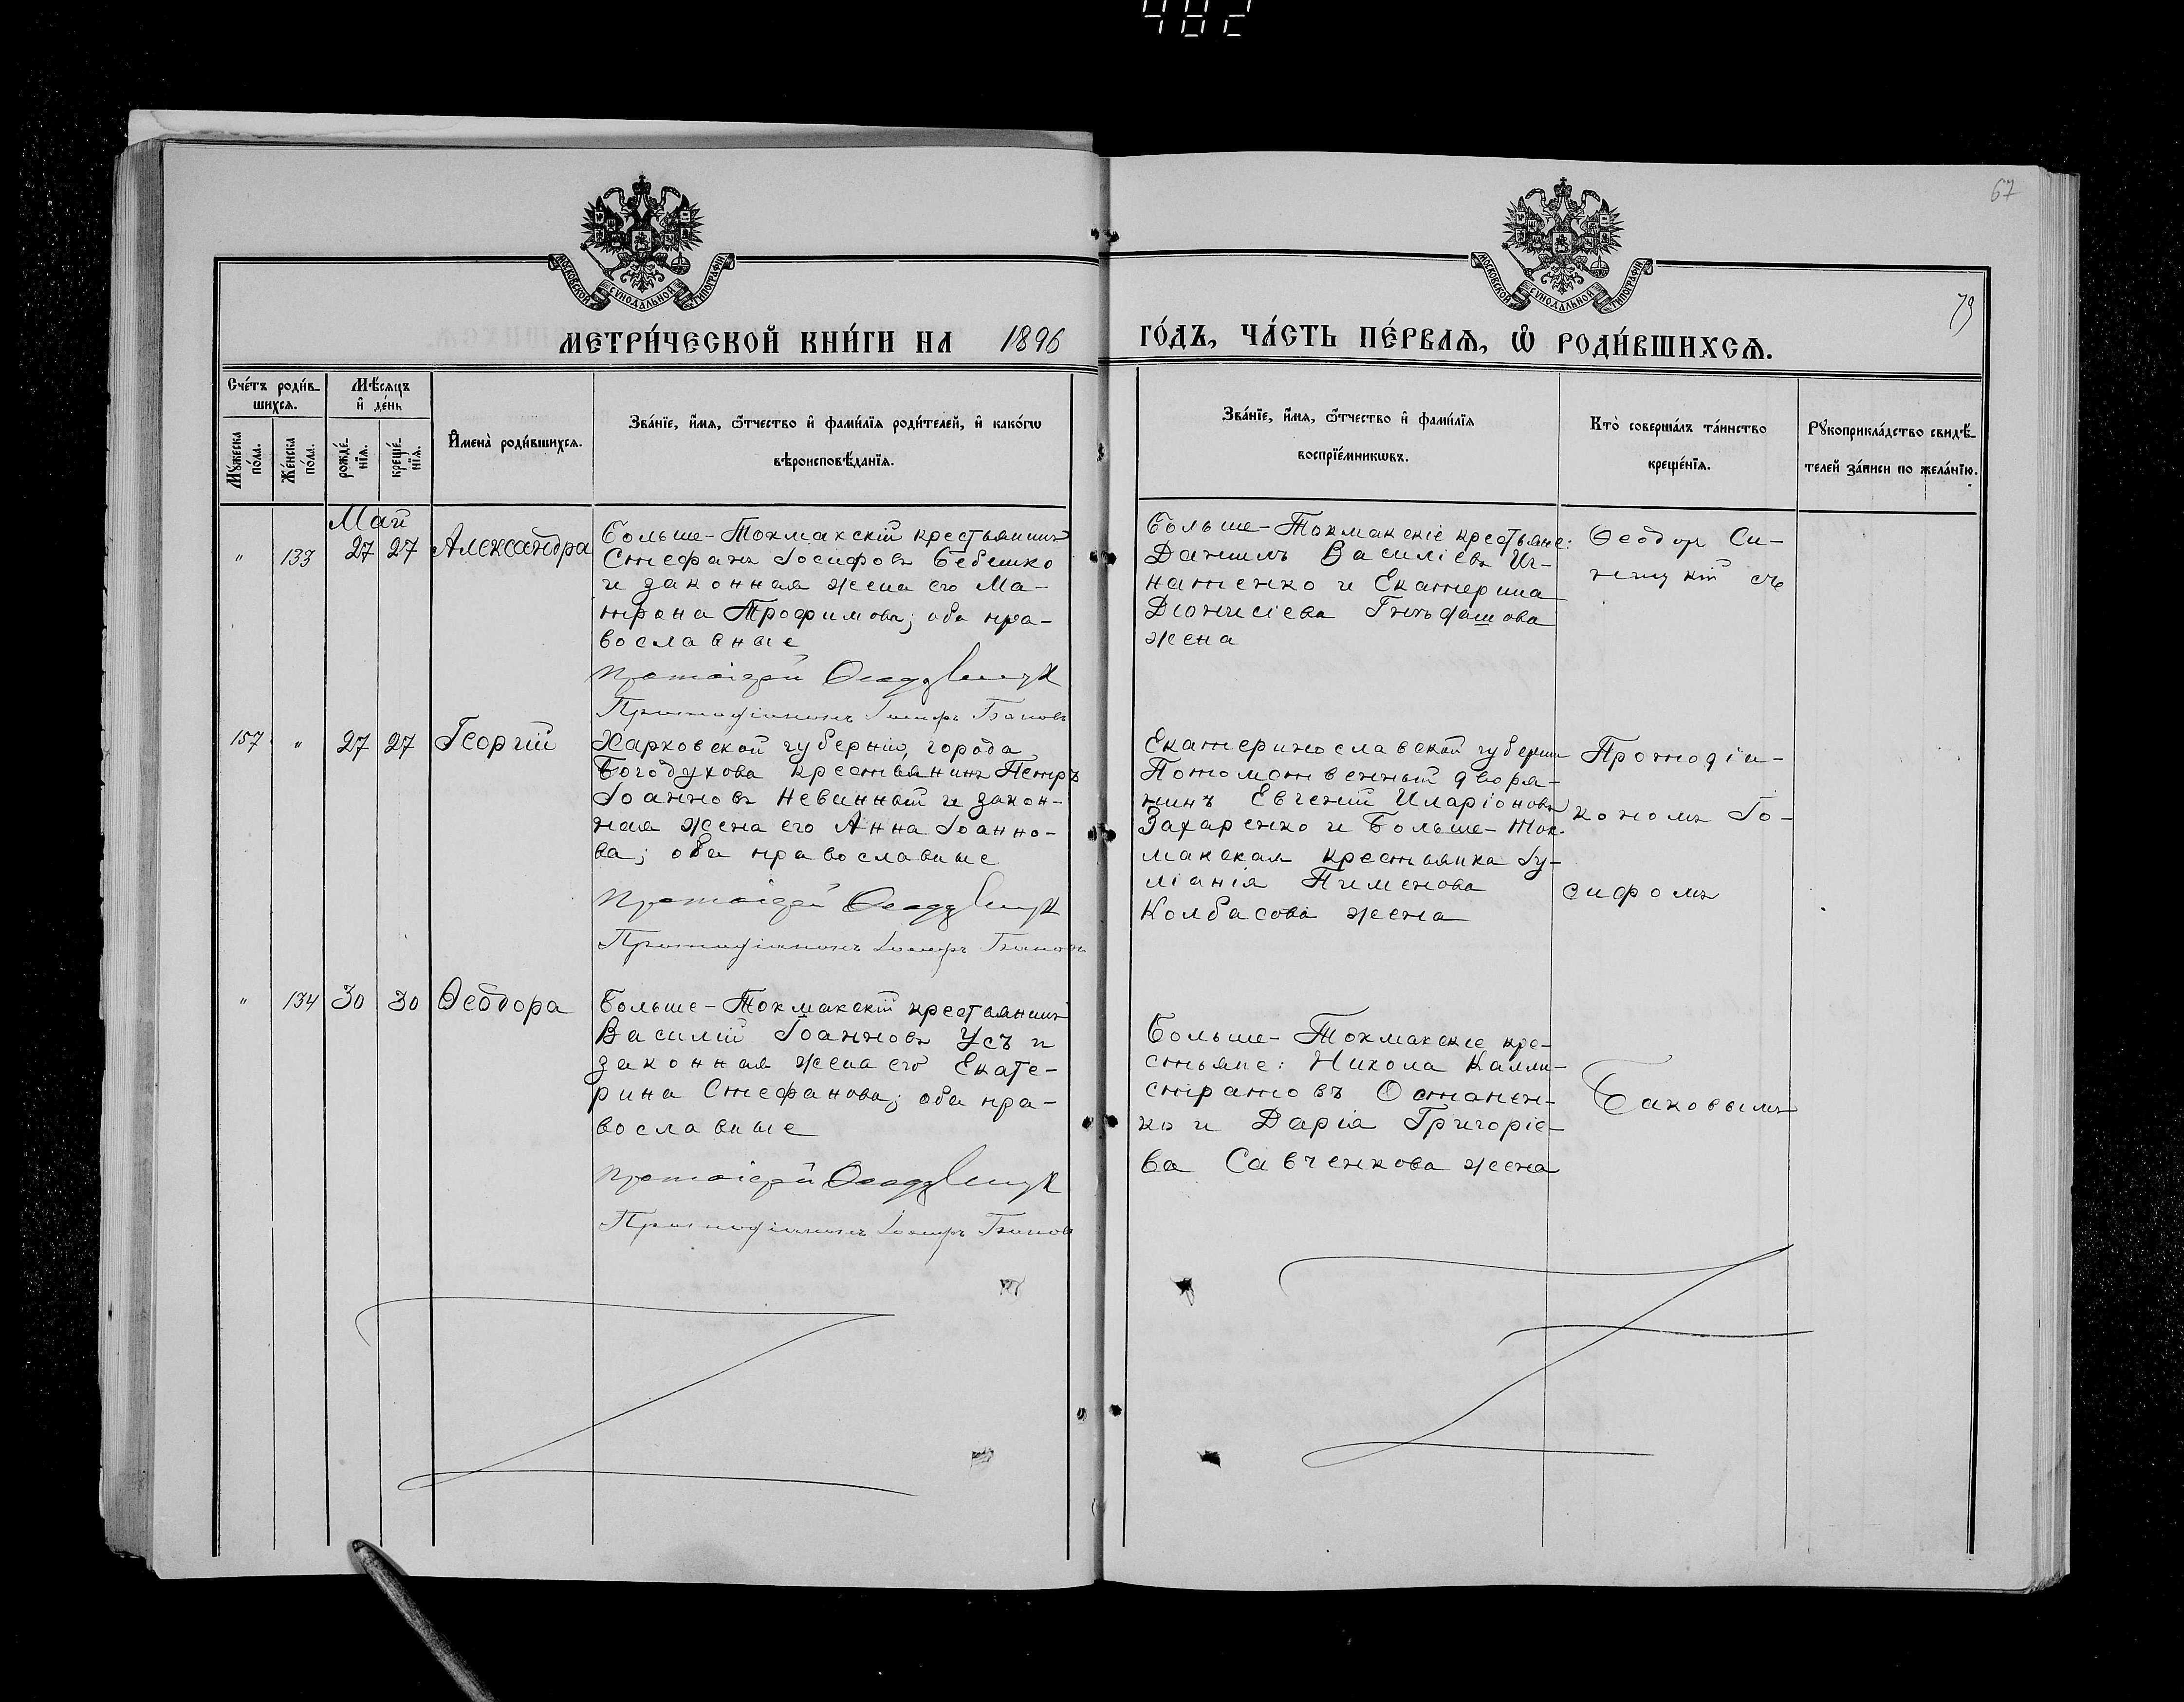 482
67
79
МОСКОВСКОЙ СѴНОДАЛЬНОЙ ТИПОГРАФІИ
МОСКОВСКОЙ СѴНОДАЛЬНОЙ ТИПОГРАФІИ
МЕТРИ́ЧЕСКОЙ КНИ́ГИ НА 1896
ГО́ДЪ, ЧА́СТЬ ПЕ́РВАѦ, Ѡ҆ РОДИ́ВШИХСѦ.
Сче́тъ роди́в-
шихсѧ.
Мꙋ́жеска по́ла.
Же́нска по́ла.
Мѣ́сѧцъ
и҆ де́нь
рожде́-
нїѧ.
креще́-
нїѧ.
И҆мена̀ роди́вшихсѧ.
Зва́нїе, и҆́мѧ, ѻ҆́тчество и҆ фами́лїѧ роди́телей, и҆ како́гѡ
вѣроисповѣ́данїѧ.
Зва́нїе, и҆́мѧ, ѻ҆́тчество и҆ фами́лїѧ
воспрїе́мникѡвъ.
Кто̀ соверша́лъ та́инство
креще́нїѧ.
Рꙋкоприкла́дство свидѣ́-
телей за́писи по жела́нїю.
Май
" 133 27 27 Александра
Больше-Токмакскій крестьянинъ
Стефанъ Іосифовъ Бебешко
и законная жена его Ма-
трона Трофимова; оба пра-
вославные
Протоіерей Ѳеодоръ Синицкій
Протодіаконъ Іосифъ Баковъ
Больше-Токмакскіе крестьяне:
Даниилъ Василіевъ Иг-
натенко и Екатерина
Діонисіева
жена
Ѳеодоръ Си-
ницкій съ
157 " 27 27 Георгій
Харковской губерніи, города
Богодухова крестьянинъ Петръ
Іоанновъ Невинный и закон-
ная жена его Анна Іоанно-
ва; оба православные
Протоіерей Ѳеодоръ Синицкій
Протодіаконъ Іосифъ Баковъ
Екатеринославской губерніи
Потомственный дворя-
нинъ Евгеній Иларіоновъ
Захаренко и Больше-Ток-
макская крестьянка Іу-
ліанія Пименова
Колбасова жена
Протодіа-
кономъ Іо-
сифомъ
" 134 30 30 Ѳеодора
Больше-Токмакскій крестьянинъ
Василій Іоанновъ Усъ и
законная жена его Екате-
рина Стефанова; оба пра-
вославные
Протоіерей Ѳеодоръ Синицкій
Протодіаконъ Іосифъ Баковъ
Больше-Токмакскіе кре-
стьяне: Никола Калли-
стратовъ Остапен-
ко и Дарія Григоріе-
ва Савченкова жена
Баковымъ